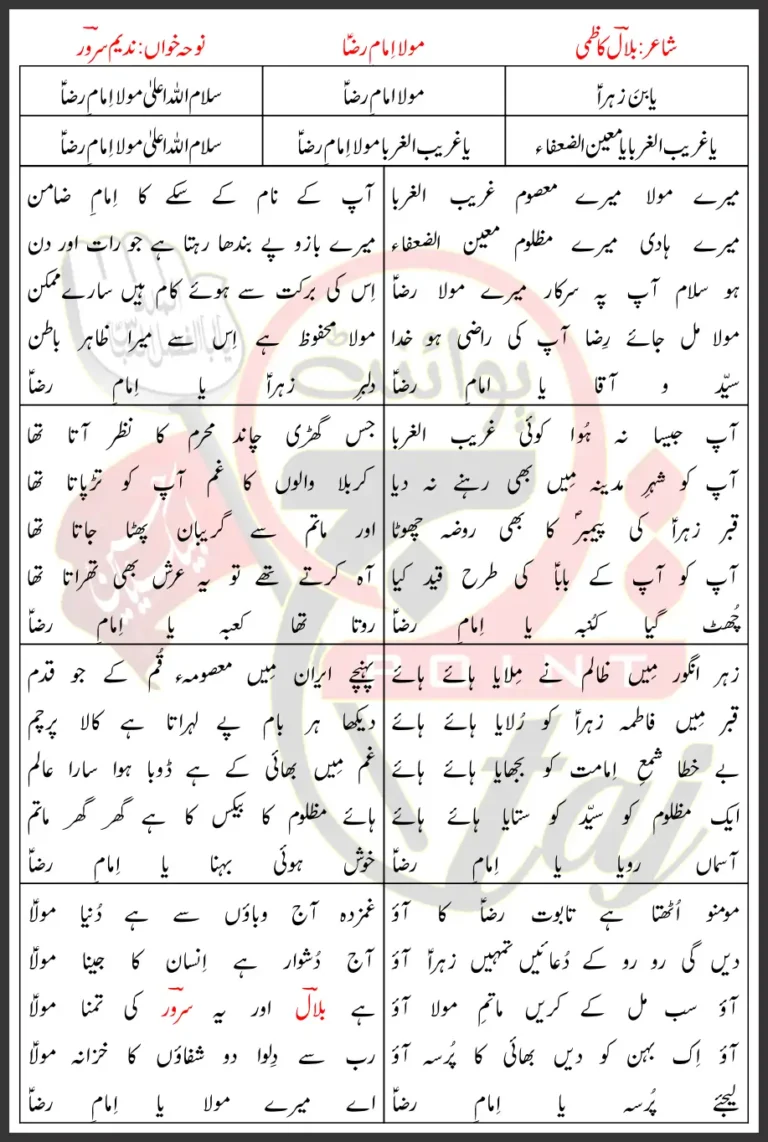 شاعر: بلالؔ کاظمی
مولا اِمام رضاؑ
نوحہ خواں: ندیم سرورؔ
یابنَ زہراؑ
مولا امام رضاؑ
سلام اللہ اعلیٰ مولا اِمام رضاؑ
یا غریب الغربا یا معین الضعفاء
یا غریب الغربا مولا اِمام رضاؑ
سلام اللہ اعلیٰ مولا اِمام رضاؑ
میرے مولا میرے معصوم غریب الغربا
میرے ہادی میرے مظلوم معین الضعفاء
ہو سلام آپ پہ سرکار میرے مولا رضاؑ
مولا مل جائے رِضا آپ کی راضی ہو خدا
سیّد و آقا یا امام رضاؑ
آپ کے نام کے سکے کا اِمامِ ضامن
میرے بازو پے بندھا رہتا ہے جو رات اور دن
اِس کی برکت سے ہوئے کام ہیں سارے ممکن
مولا محفوظ ہے اِس سے میرا ظاہر باطن
دلبرِ زہراؑ یا اِمام رضاؑ
آپ جیسا نہ ہُوا کوئی غریب الغربا
آپ کو شہرِ مدینہ مِیں بھی رہنے نہ دیا
قبر زہراؑ کی پیمبرؐ کا بھی روضہ چھوٹا
آپ کو آپ کے باباؑ کی طرح قید کیا
چُھٹ گیا کُنبہ یا اِمام رضاؑ
جس گھڑی چاند محرم کا نظر آتا تھا
کربلا والوں کا غم آپ کو تڑپاتا تھا
اور ماتم سے گریبان پھٹا جاتا تھا
آہ کرتے تھے تو یہ عرش بھی تھراتا تھا
روتا تھا کعبہ یا اِمام رضاؑ
زہر انگور مِیں ظالم نے مِلایا ہائے ہائے
قبر مِیں فاطمہ زہراؑ کو رُلایا ہائے ہائے
بے خطا شمعِ اِمامت کو بجھایا ہائے ہائے
ایک مظلوم کو سیّد کو ستایا ہائے ہائے
آسماں رویا یا اِمام رضاؑ
پہنچے ایران مِیں معصومہء قُم کے جو قدم
دیکھا ہر بام پے لہراتا ہے کالا پرچم
غم مِیں بھائی کے ہے ڈوبا ہوا سارا عالم
ہائے مظلوم کا بیکس کا ہے گھر گھر ماتم
خوش ہوئی بہنا یا اِمام رضاؑ
مومنو اُٹھتا ہے تابوت رضاؑ کا آؤ
دیں گی رو رو کے دُعائیں تمہیں زہراؑ آؤ
آؤ سب مل کے کریں ماتمِ مولا آؤ
آؤ اِک بہن کو دیں بھائی کا پُرسہ آؤ
لیجئے پُرسہ یا اِمام رضاؑ
غمزدہ آج وباؤں سے ہے دُنیا مولاؑ
آج دُشوار ہے اِنسان کا جینا مولاؑ
ہے بلالؔ اور یہ سرورؔ کی تمنا مولاؑ
رب سے دِلوا دو شفاؤں کا خزانہ مولاؑ
اے میرے مولا یا اِمام رضاؑ
پوائنٹ
POINT
taj